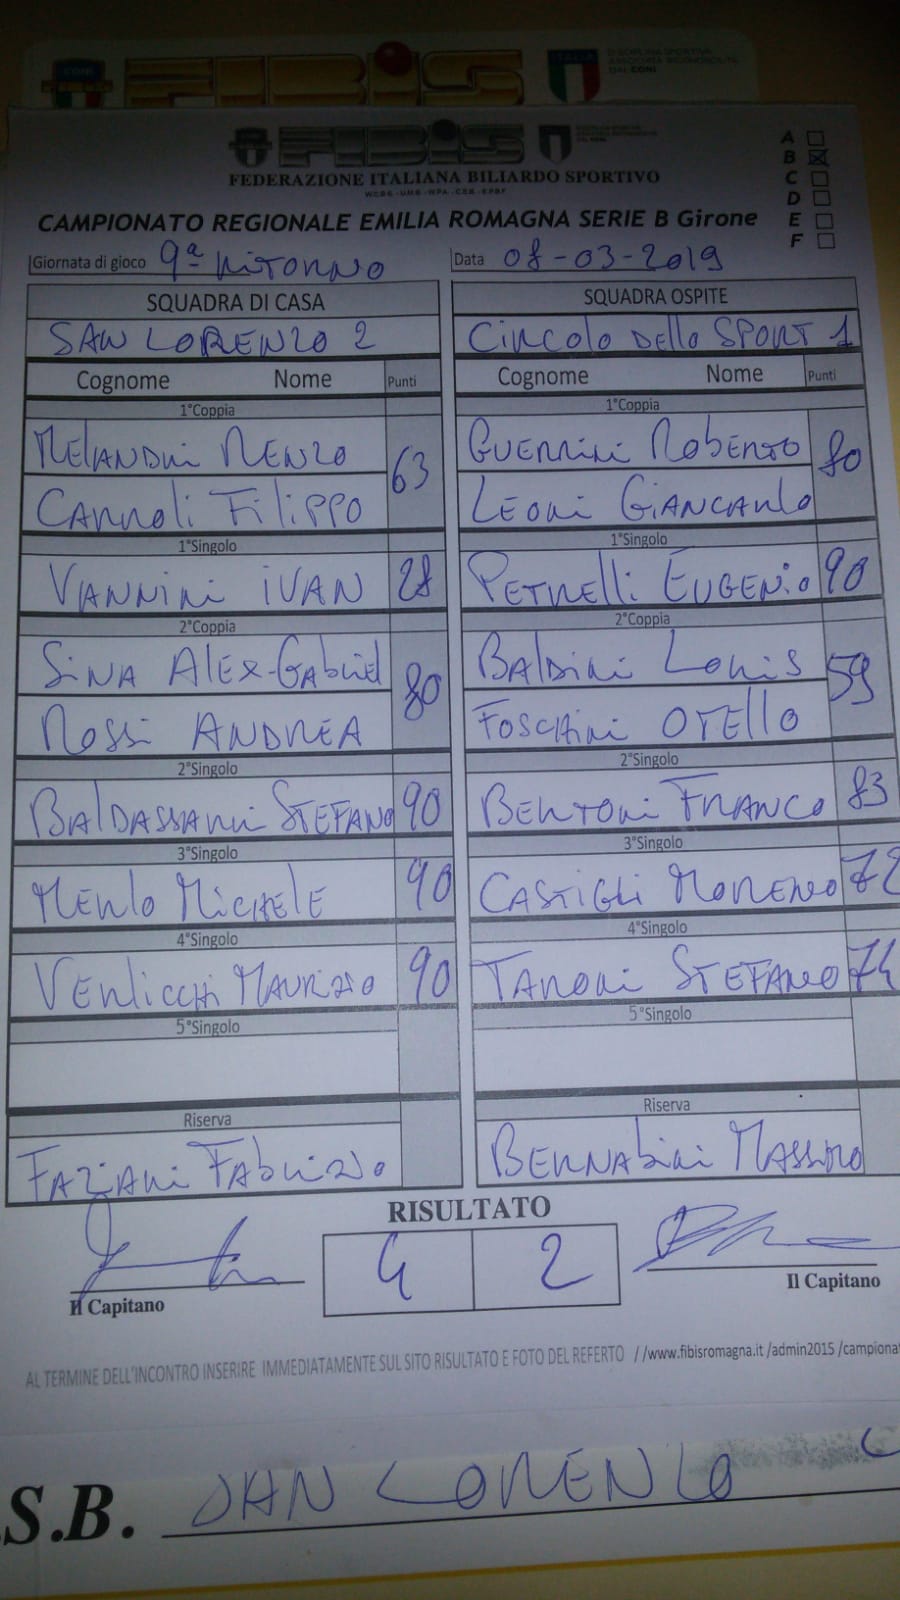 FIBIS
CONI
ITALIA
DISCIPLINA SPORTIVA
ASSOCIATA RICONOSCIUTA
DAL CONI
FIBIS
FEDERAZIONE ITALIANA BILIARDO SPORTIVO
A
B
C
D
E
F
CAMPIONATO REGIONALE EMILIA ROMAGNA SERIE B Girone
Giornata di gioco 9ª RITORNO Data 08-03-2019
SQUADRA DI CASA SQUADRA OSPITE
SAN LORENZO 2 CIRCOLO DELLO SPORT 1
Cognome Nome Punti Cognome Nome Punti
1°Coppia 1°Coppia
MELANDRI RENZO 63 GUERRINI ROBERTO 80
CARROLI FILIPPO LEONI GIANCARLO
1°Singolo 1°Singolo
VANNINI IVAN 28 PETRELLI EUGENIO 90
2°Coppia 2°Coppia
SINA ALEX-GABRIEL 80 BALDINI LORIS 59
ROSSI ANDREA FOSCHINI OTELLO
2°Singolo 2°Singolo
BALDASSARRI STEFANO 90 BERTONI FRANCO 83
3°Singolo 3°Singolo
MERLO MICHELE 90 CASTIGLI MORENO 72
4°Singolo 4°Singolo
VERLICCHI MAURIZIO 90 TARONI STEFANO 74
5°Singolo 5°Singolo
Riserva Riserva
FAZIANI FABRIZIO BERNABINI MASSIMO
RISULTATO
4 2
Il Capitano Il Capitano
AL TERMINE DELL'INCONTRO INSERIRE IMMEDIATAMENTE SUL SITO RISULTATO E FOTO DEL REFERTO //www.fibisromagna.it /admin2015 /campionat
.S.B. SAN LORENZO